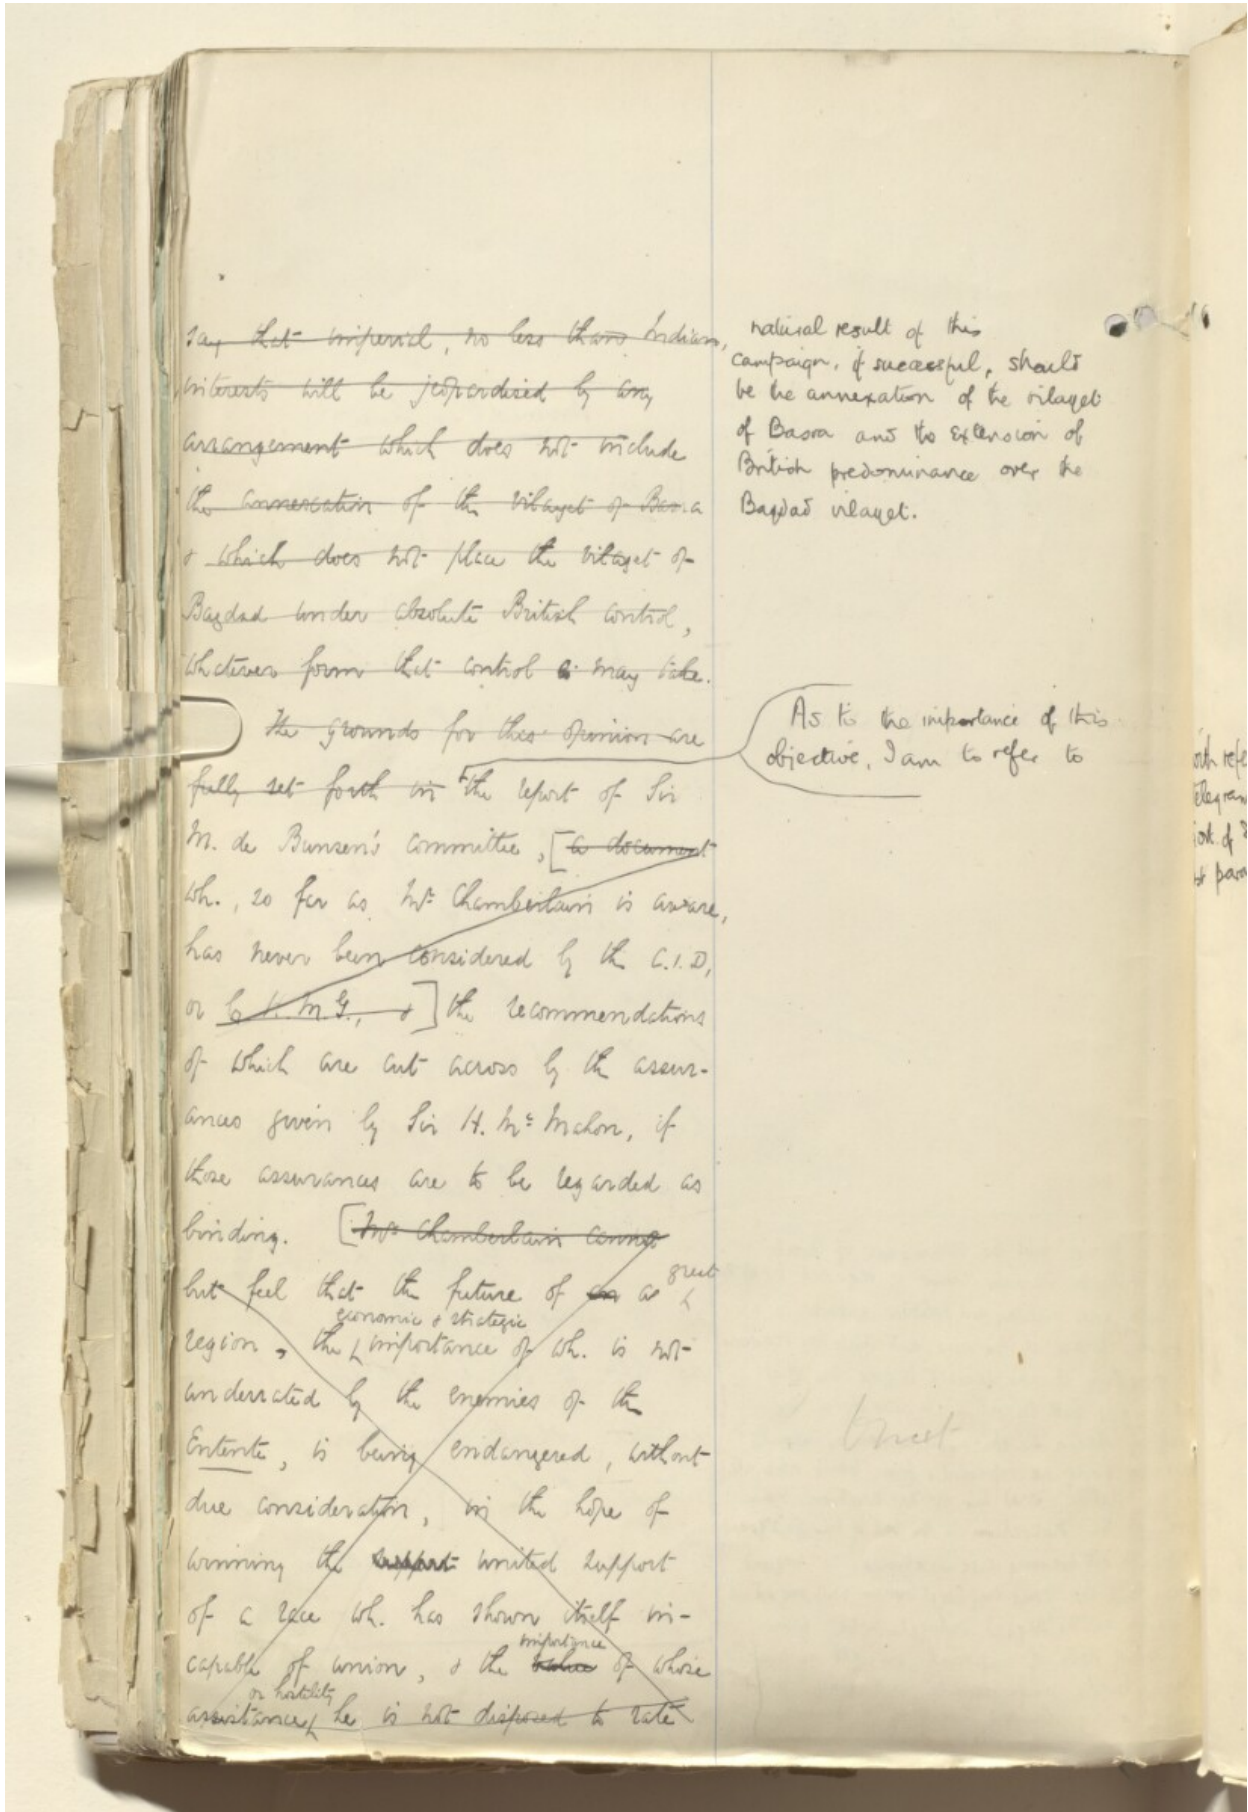 say that imperial, no less than Indian,
interests will be jeopardised by any
arrangement which does not include
the annexation of the vilayet of Basra
& which does not place the vilayet of
Bagdad under absolute British control,
whatever form that control may take.
The grounds for this opinion are
fully set forth in the report of Sir
M. de Bunsen's committee, [a document
wh., so far as Mr Chamberlain is aware,
has never been considered by the C.I.D,
or by H.M.G., &] the recommendations
of which are cut across by the assur-
ances given by Sir H. McMahon, if
those assurances are to be regarded as
binding. [Mr Chamberlain cannot
but feel that the future of an a great
region, the economic & strategic importance of wh. is not
underrated by the enemies of the
Entente, is being endangered, without
due consideration, in the hope of
winning the support united support
of a race wh. has shown itself in-
capable of union, & the value importance of whose
assistance or hostility he is not disposed to rate
natural result of this
campaign, if successful, should
be the annexation of the vilayet
of Basra and the extension of
British predominance over the
Bagdad vilayet.
As to the importance of this
objective, I am to refer to